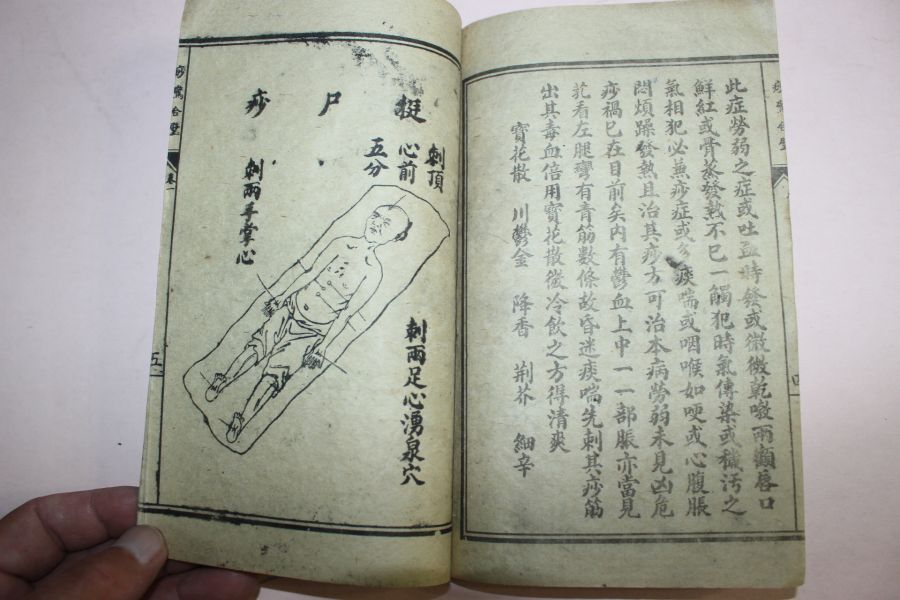 此症勞弱之症或吐血時發或微微乾嗽兩顴唇口
鮮紅或骨蒸發熱不已一觸犯時氣傳染或穢汚之
氣相犯必兼痧症或多痰喘或咽喉如哽或心腹脹
悶煩躁發熱且治其痧方可治本病勞弱未見凶危
痧禍已在目前矣內有鬱血上中一一部脹亦當見
芤看左腿彎有青筋數條故昏迷痰喘先刺其痧筋
出其毒血倍用寶花散微冷飲之方得清爽
寶花散 川鬱金 降香 荆芥 細辛
痧驚合璧
挺尸痧
刺頂
心前
五分
刺兩手掌心
刺兩足心湧泉穴
痧驚合璧
卷
五